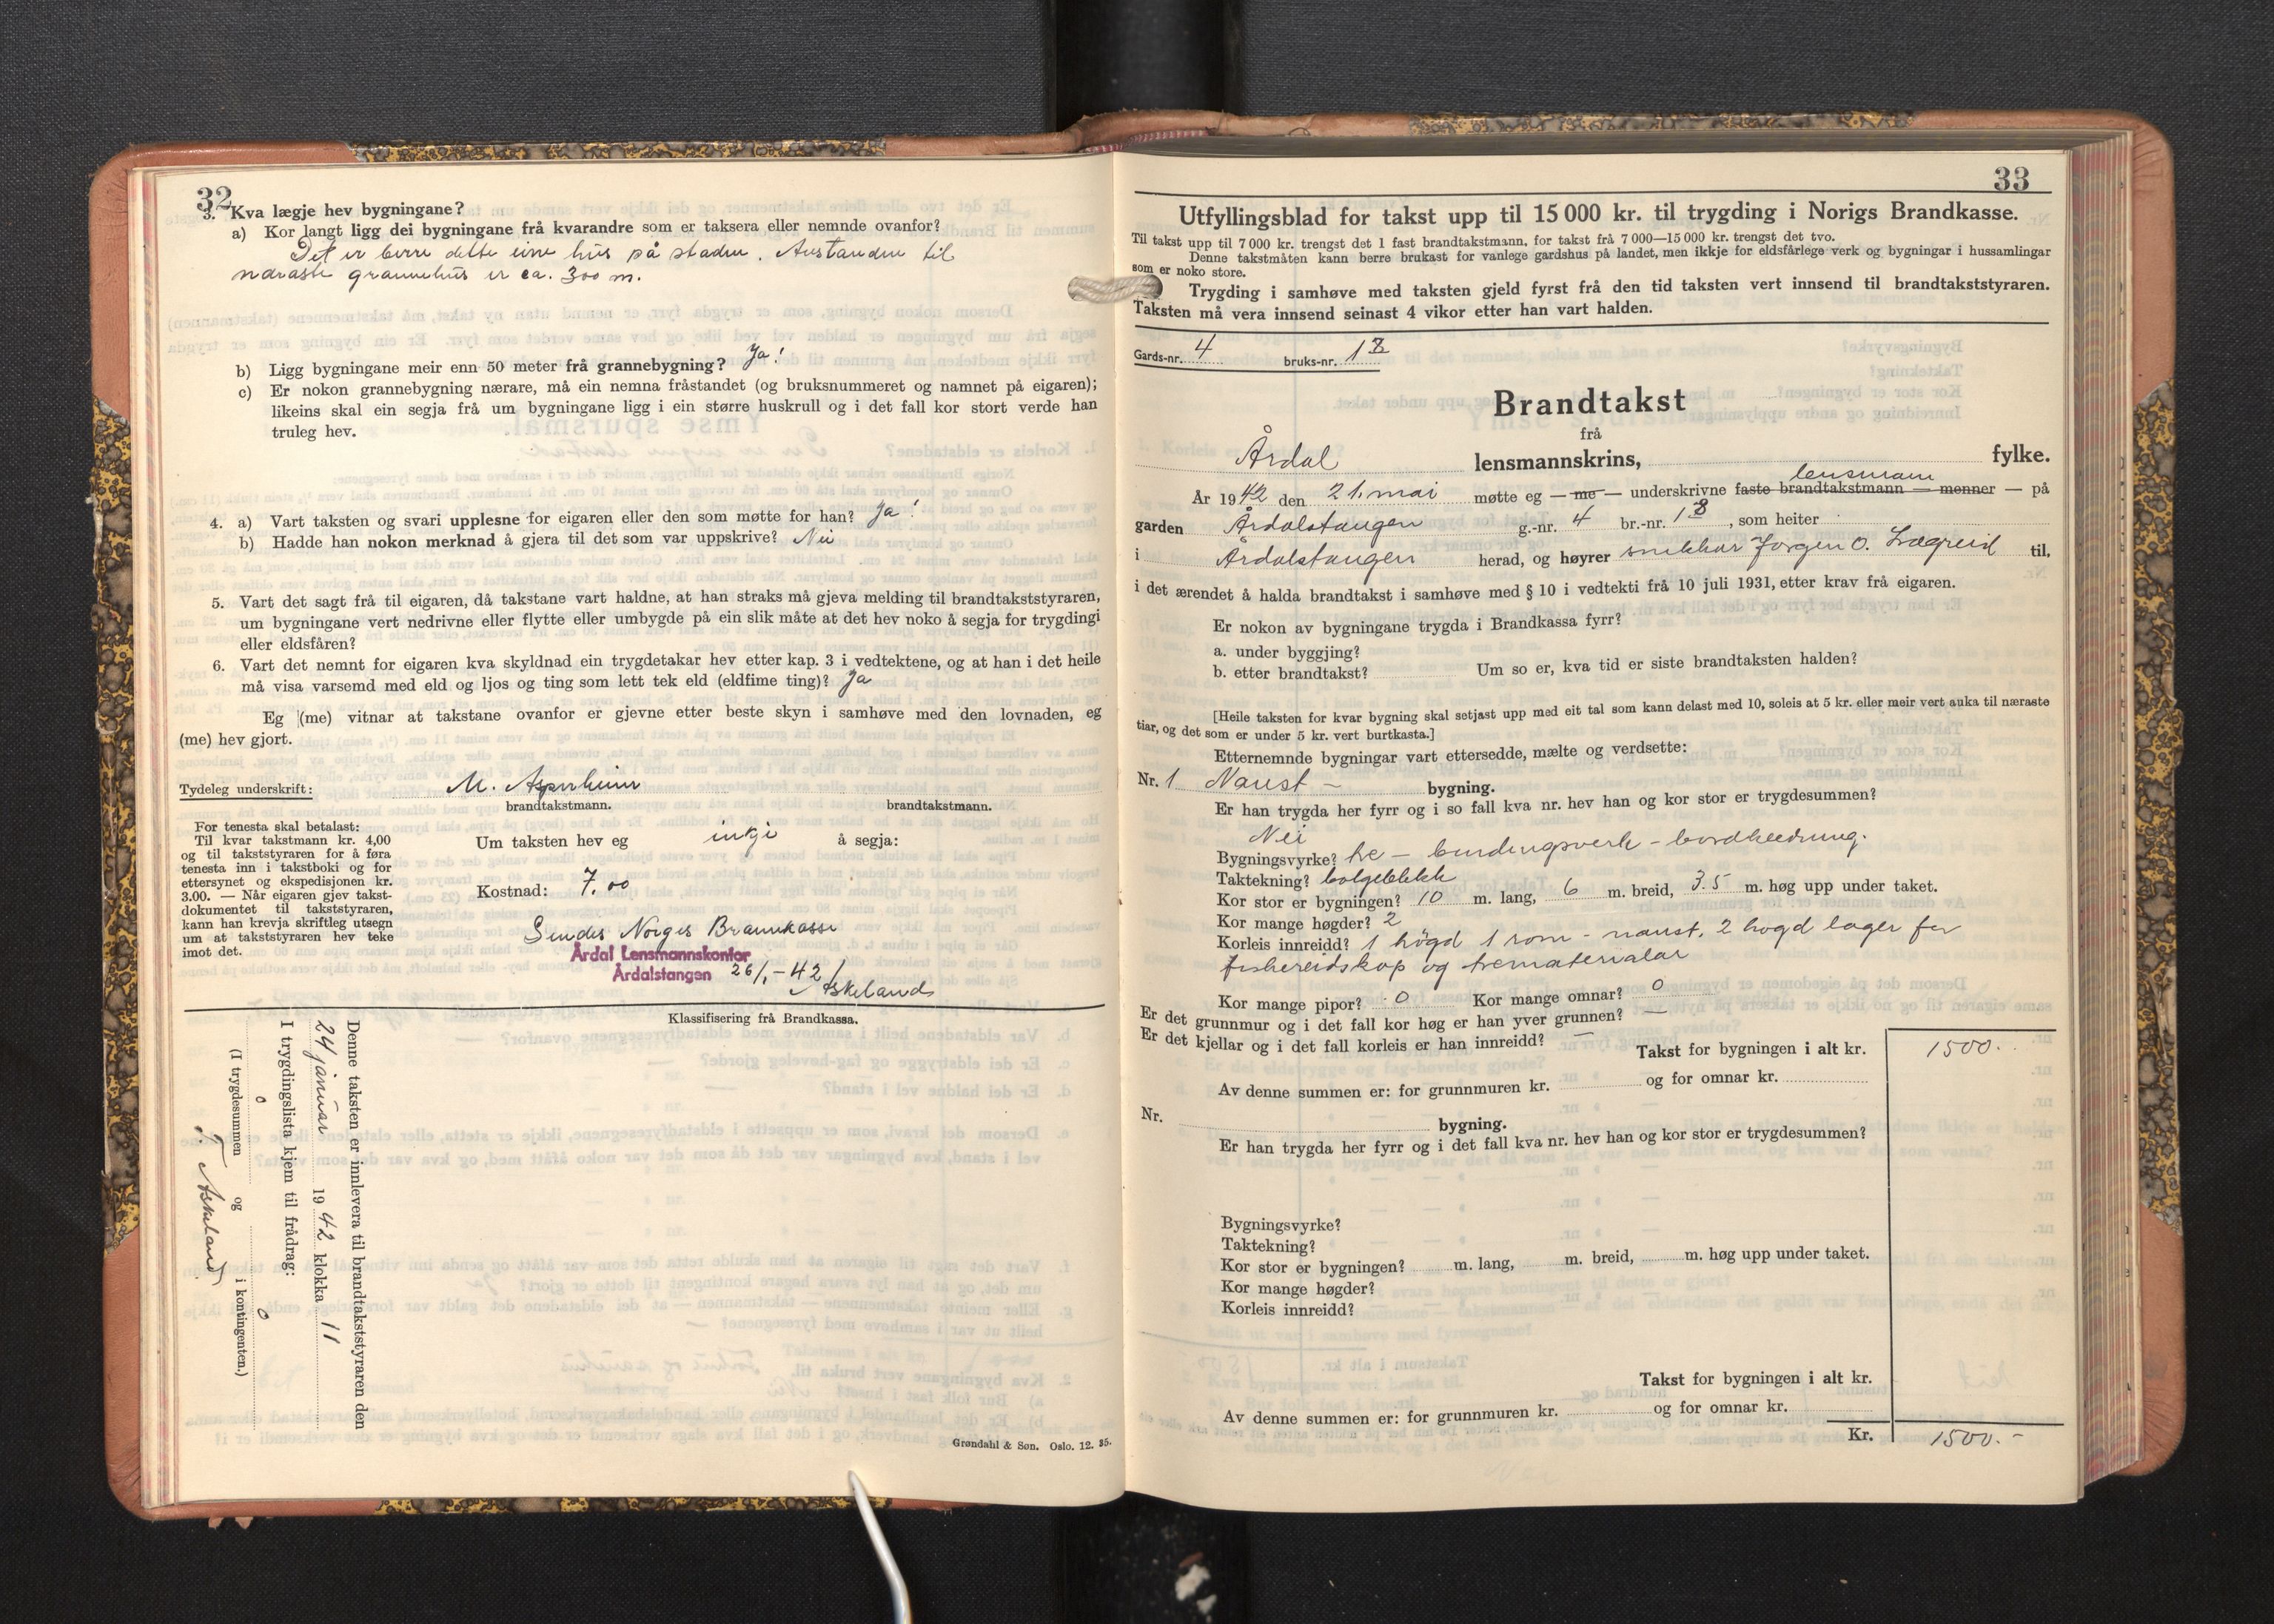 32
3. Kva lægje hev bygningane?
a) Kor langt ligg dei bygningane frå kvarandre som er taksera eller nemnde ovanfor?
Det er berre dette eine hus på staden. Avstanden til
næraste grannehus er ca. 300 m.
b) Ligg bygningane meir enn 50 meter frå grannebygning? Ja!
c) Er nokon grannebygning nærare, må ein nemna fråstandet (og bruksnummeret og namnet på eigaren);
likeins skal ein segja frå um bygningane ligg i ein større huskrull og i det fall kor stort verde han
truleg hev.
4. a) Vart taksten og svari upplesne for eigaren eller den som møtte for han? Ja!
b) Hadde han nokon merknad å gjera til det som var uppskrive? Nei
5. Vart det sagt frå til eigaren, då takstane vart haldne, at han straks må gjeva melding til brandtakststyraren,
um bygningane vert nedrivne eller flytte eller umbygde på ein slik måte at det hev noko å segja for trygdingi
eller eldsfåren?
6. Vart det nemnt for eigaren kva skyldnad ein trygdetakar hev etter kap. 3 i vedtektene, og at han i det heile
må visa varsemd med eld og ljos og ting som lett tek eld (eldfime ting)? Ja
Eg (me) vitnar at takstane ovanfor er gjevne etter beste skyn i samhøve med den lovnaden, eg
(me) hev gjort.
Tydeleg underskrift: M.
brandtakstmann. brandtakstmann.
For tenesta skal betalast:
Til kvar takstmann kr. 4,00
og til takststyraren for å føra
tenesta inn i takstboki og for
ettersynet og ekspedisjonen kr.
3.00. — Når eigaren gjev takst-
dokumentet til takststyraren,
kann han krevja skriftleg utsegn
um at takststyraren hev teke
imot det.
Um taksten hev eg inkje å segja:
Kostnad: 7.00
Sendes Norges Brannkasse
Årdal Lensmannskontor
Årdalstangen 26/1.-42
Askeland
Klassifisering frå Brandkassa.
Denne taksten er innlevera til brandtakststyraren den
24 januar 1942 klokka 11
I trygdingslista kjem til frådrag:
0 0
(I trygdesummen og i kontingenten.)
T. Askeland
Grøndahl & Søn. Oslo. 12. 35.
33
Utfyllingsblad for takst upp til 15 000 kr. til trygding i Norigs Brandkasse.
Til takst upp til 7 000 kr. trengst det 1 fast brandtakstmann, for takst frå 7 000—15 000 kr. trengst det tvo.
Denne takstmåten kann berre brukast for vanlege gardshus på landet, men ikkje for eldsfårlege verk og bygningar i hussamlingar
som er noko store.
Trygding i samhøve med taksten gjeld fyrst frå den tid taksten vert innsend til brandtakststyraren.
Taksten må vera innsend seinast 4 vikor etter han vart halden.
Gards-nr. 4 bruks-nr. 18
Brandtakst
frå
Årdal lensmannskrins, fylke.
lensmann
År 1942 den 21. mai møtte eg — me — underskrivne faste brandtakstmann — menner — på
garden Årdalstangen g.-nr. 4 br.-nr. 18, som heiter
i Årdalstangen herad, og høyrer snikkar Jørgen O. Lægreid til,
i det ærendet å halda brandtakst i samhøve med § 10 i vedtekti frå 10 juli 1931, etter krav frå eigaren.
Er nokon av bygningane trygda i Brandkassa fyrr?
a. under byggjing?
b. etter brandtakst? Um so er, kva tid er siste brandtaksten halden?
[Heile taksten for kvar bygning skal setjast upp med eit tal som kann delast med 10, soleis at 5 kr. eller meir vert auka til næraste
tiar, og det som er under 5 kr. vert burtkasta.]
Etternemnde bygningar vart ettersedde, mælte og verdsette:
Nr. 1 Naust - bygning.
Er han trygda her fyrr og i so fall kva nr. hev han og kor stor er trygdesummen?
Nei
Bygningsvyrke? tre - bindingsverk - bordkledning.
Taktekning? bølgeblekk
Kor stor er bygningen? 10 m. lang, 6 m. breid, 3.5 m. høg upp under taket.
Kor mange høgder? 2
Korleis innreidd? 1 høgd 1 rom - naust, 2 høgd lager for
fiskereidskap og trematerialar
Kor mange pipor? 0 Kor mange omnar? 0
Er det grunnmur og i det fall kor høg er han yver grunnen? —
Er det kjellar og i det fall korleis er han innreidd? —
Takst for bygningen i alt kr. 1500.
Av denne summen er: for grunnmuren kr. og for omnar kr.
Nr. bygning.
Er han trygda her fyrr og i det fall kva nr. hev han og kor stor er trygdesummen?
Bygningsvyrke?
Taktekning?
Kor stor er bygningen? m. lang, m. breid, m. høg upp under taket.
Kor mange høgder?
Korleis innreidd?
Takst for bygningen i alt kr.
Av denne summen er: for grunnmuren kr. og for omnar kr.
Kr. 1500.-